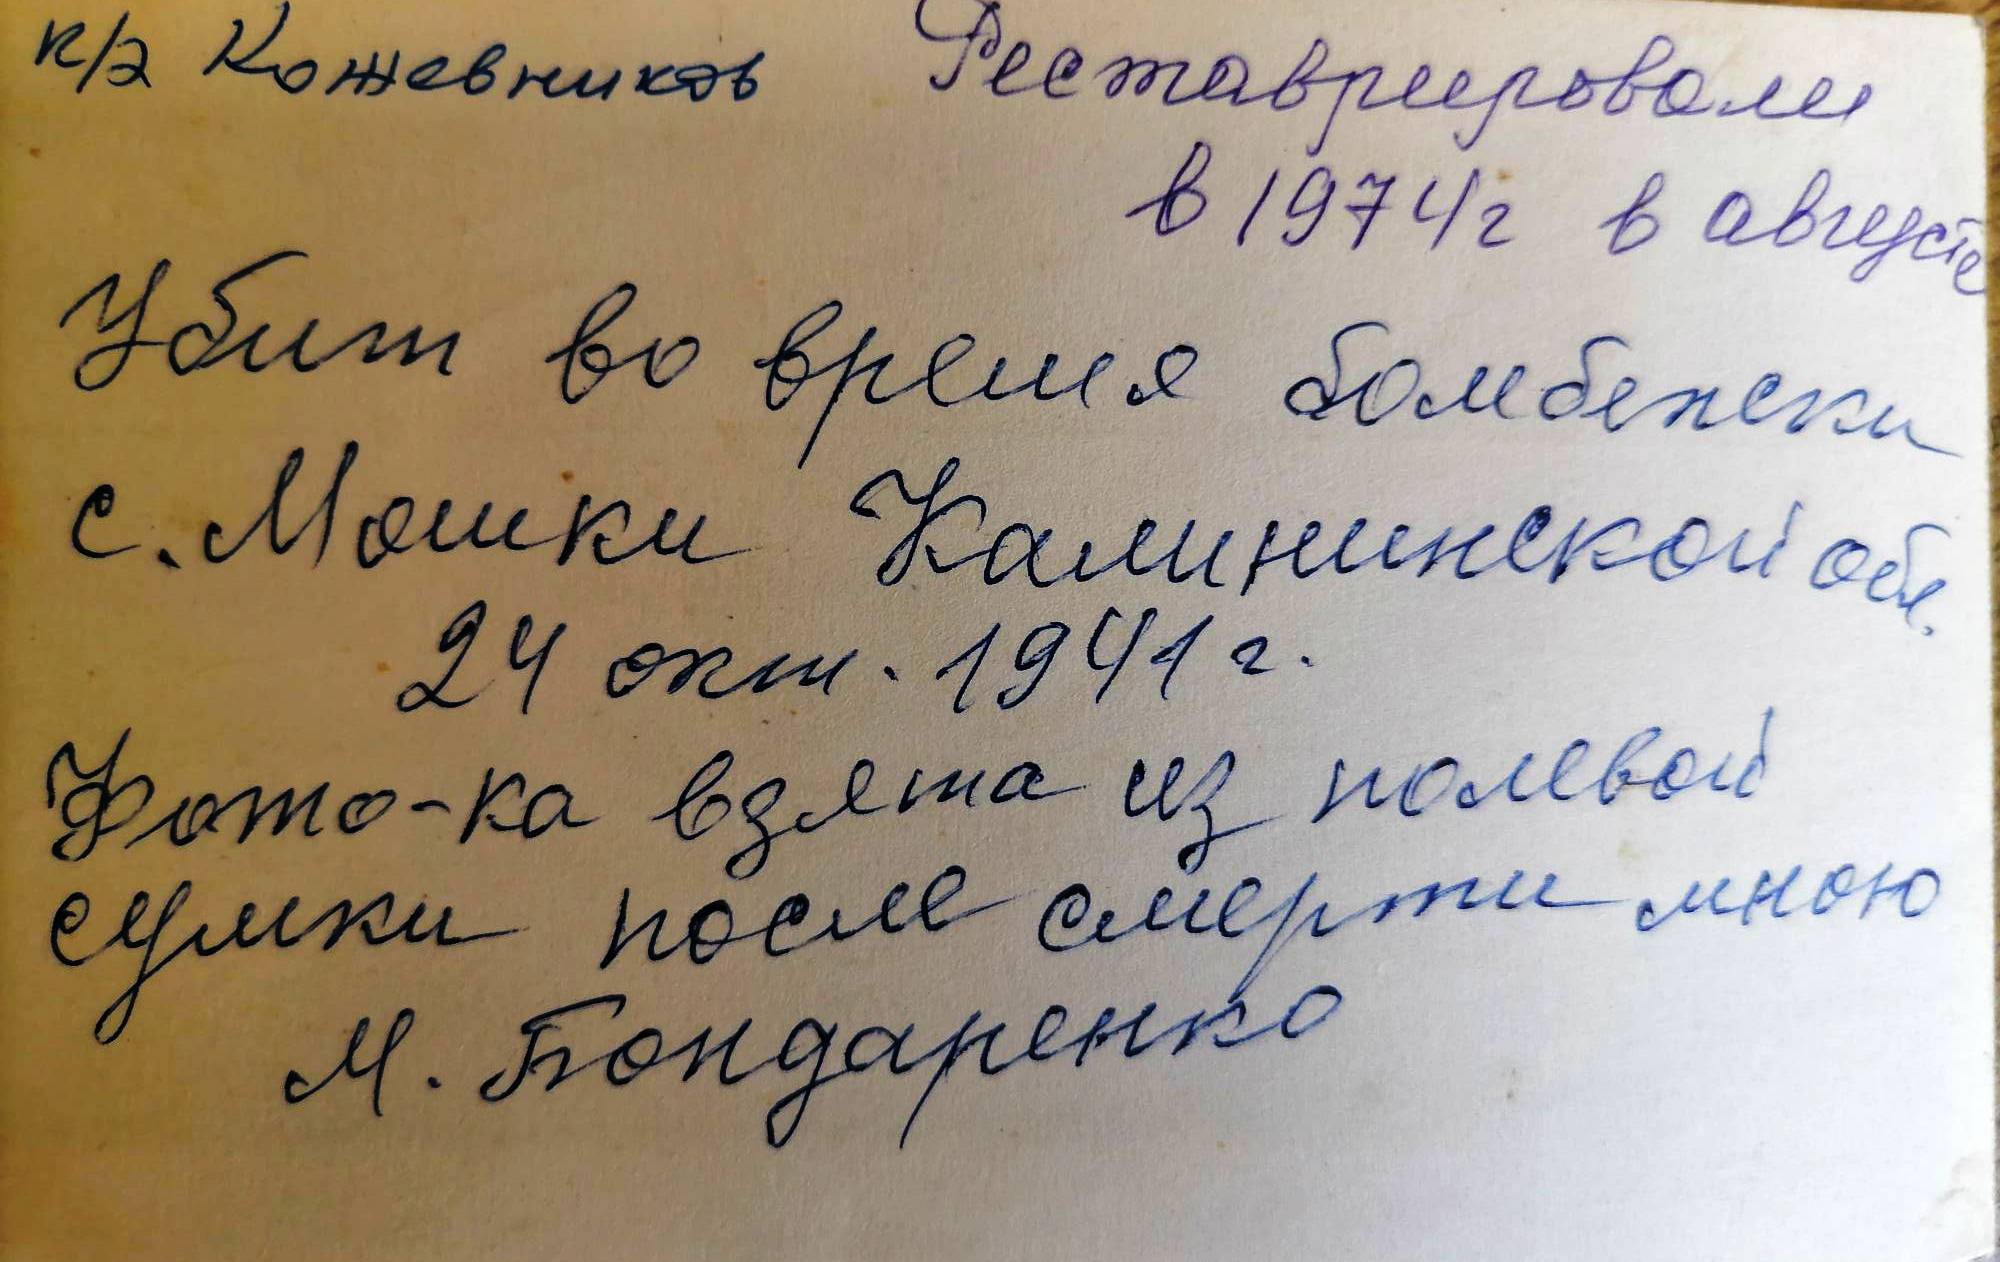 к/э Кожевников
Реставрировали
в 1974г в августе
Убит во время бомбежки
с. Мошки Калининской обл.
24 окт. 1941 г.
Фото-ка взята из полевой
сумки после смерти мною
М. Бондаренко